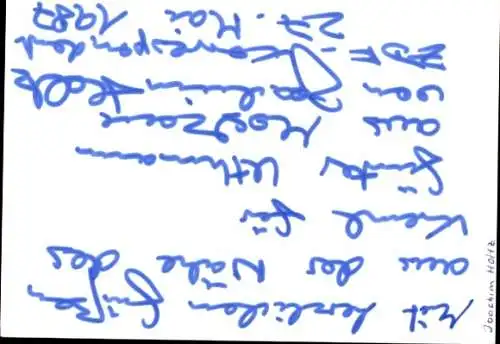 Mit herzlichen Grüßen
aus der Nähe des
Kreml für
Günter Uthmann
aus Moskau
von Joachim Holtz
ZDF-Korrespondent
27. Mai 1987
Joachim Holtz